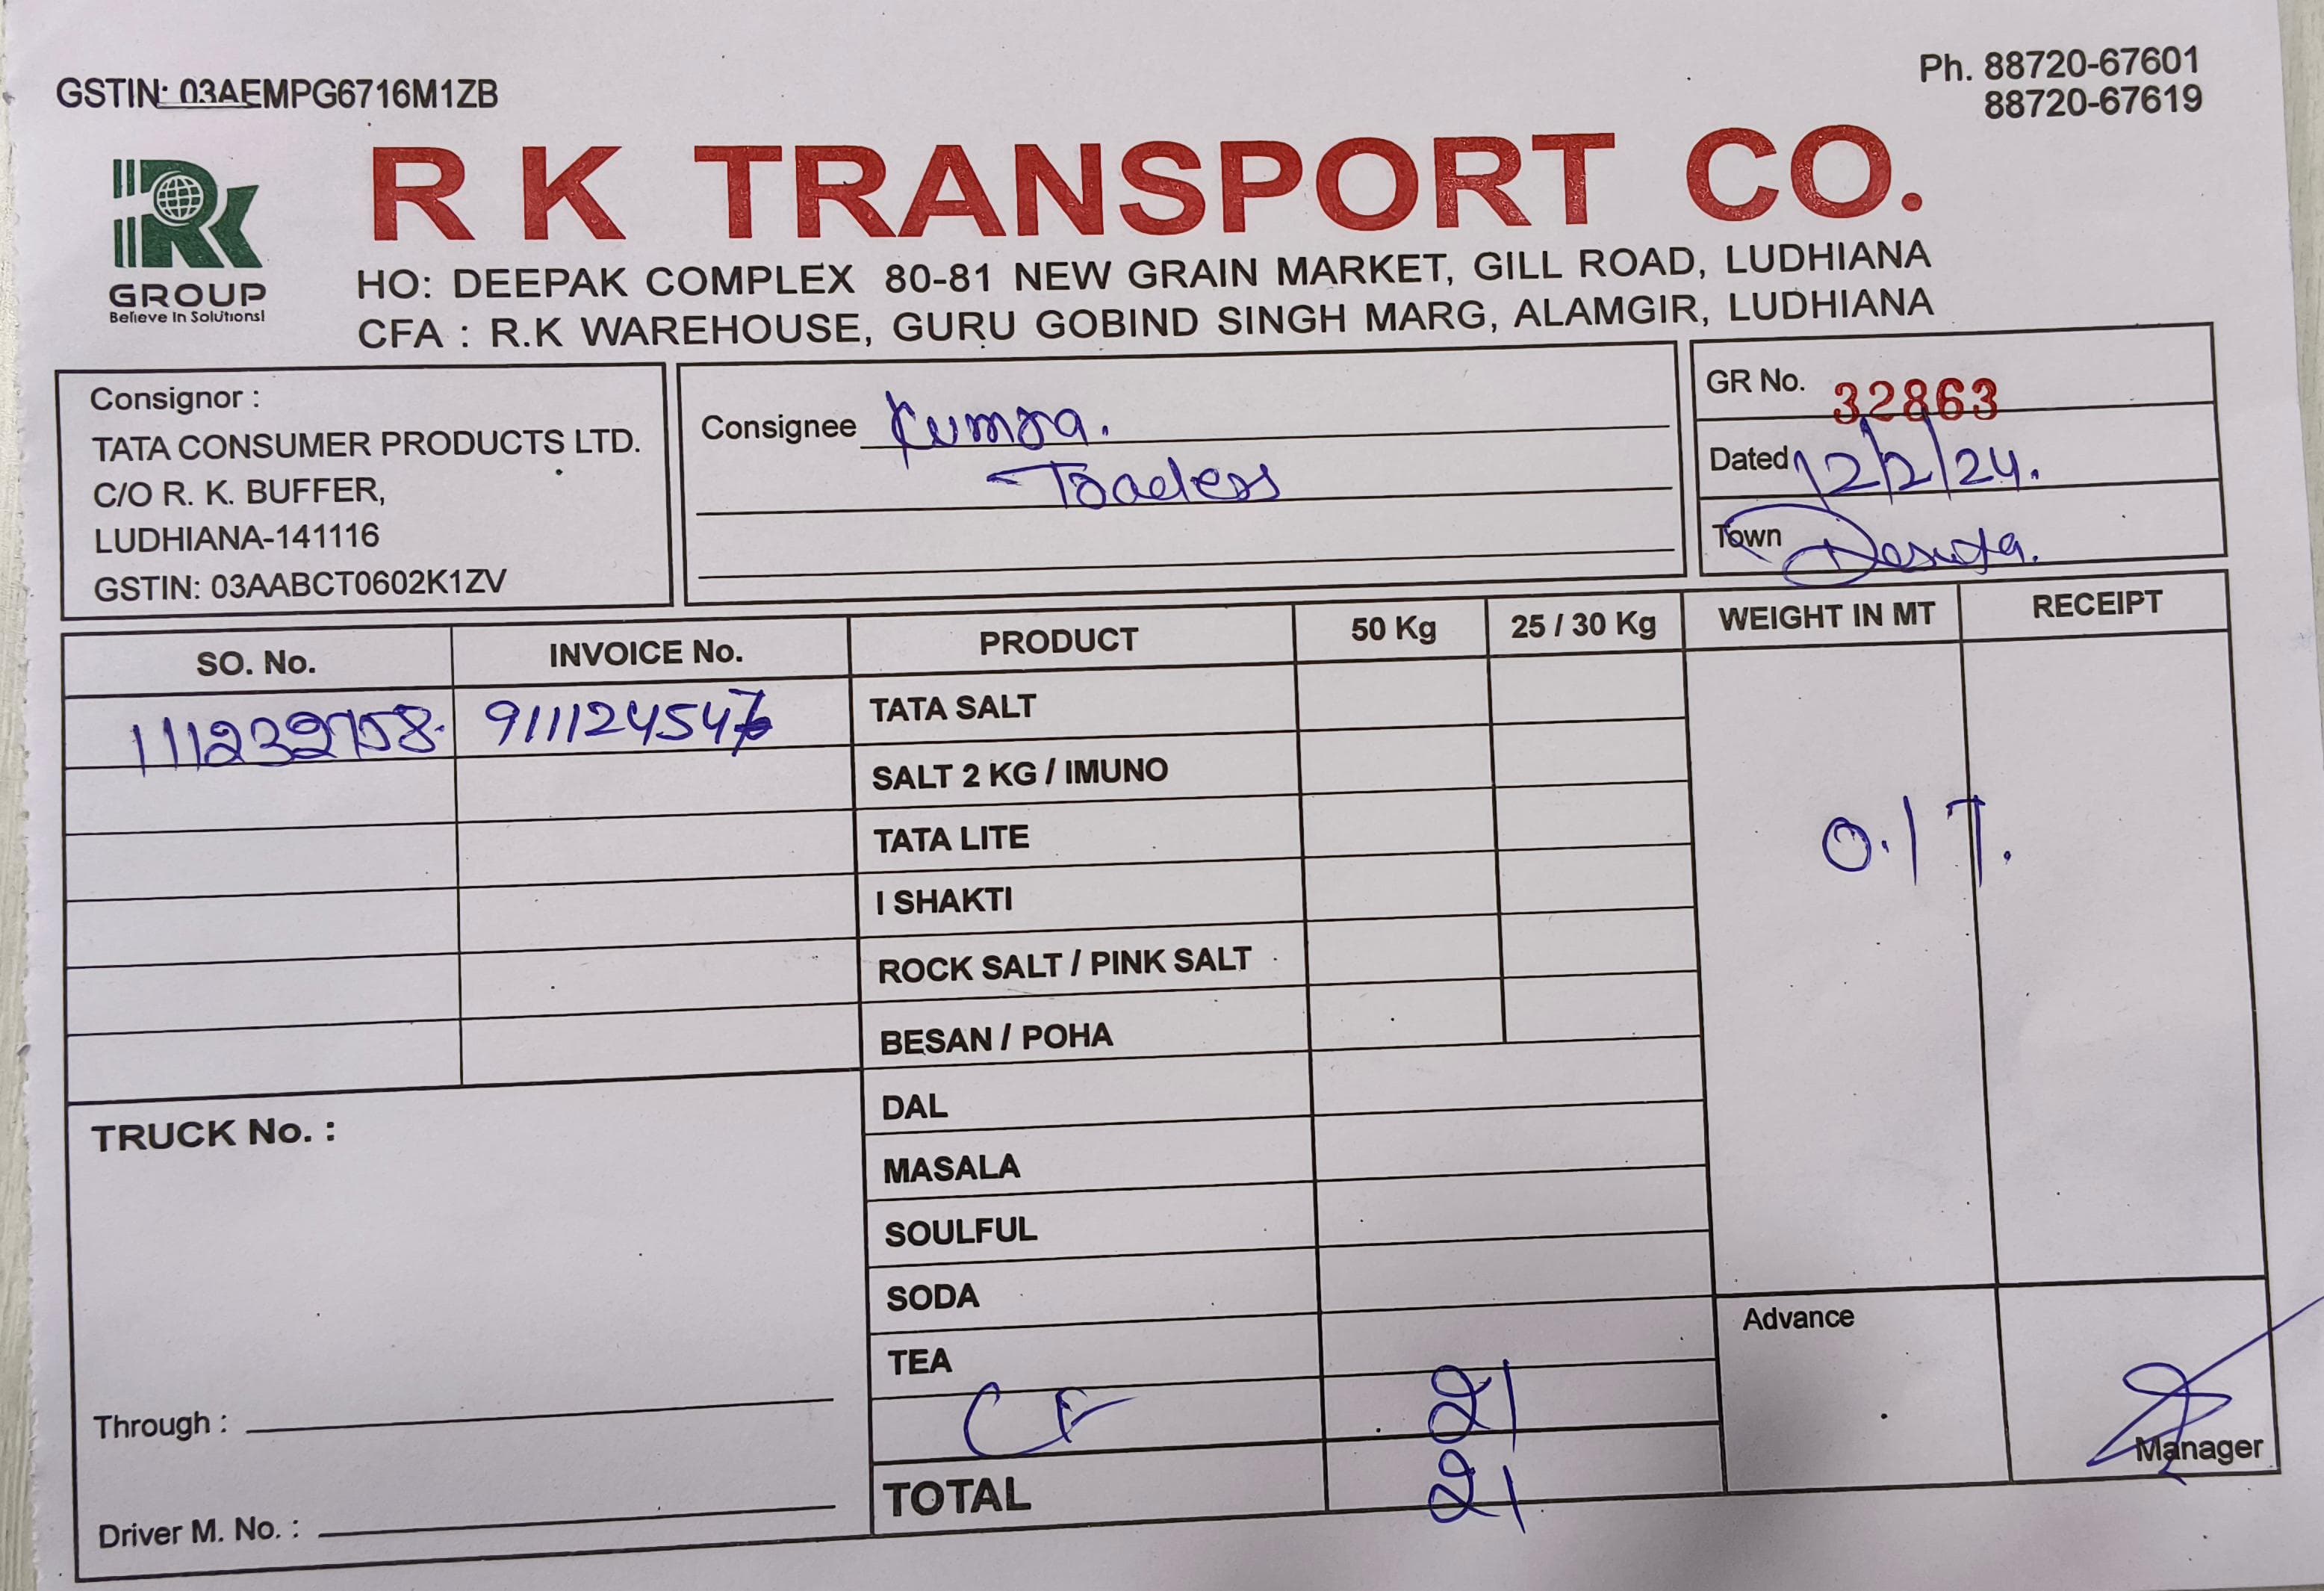 GSTIN: 03AEMPG6716M1ZB
Ph. 88720-67601
88720-67619
RK
GROUP
Believe In Solutions!
R K TRANSPORT CO.
HO: DEEPAK COMPLEX 80-81 NEW GRAIN MARKET, GILL ROAD, LUDHIANA
CFA : R.K WAREHOUSE, GURU GOBIND SINGH MARG, ALAMGIR, LUDHIANA
Consignor :
TATA CONSUMER PRODUCTS LTD.
C/O R. K. BUFFER,
LUDHIANA-141116
GSTIN: 03AABCT0602K1ZV
Consignee Kumra.
Traders
GR No. 32863
Dated 12/2/24.
Town Dasuya.
SO. No. INVOICE No. PRODUCT 50 Kg 25 / 30 Kg WEIGHT IN MT RECEIPT
111232758. TATA SALT
SALT 2 KG / IMUNO
TATA LITE
0.1 T.
I SHAKTI
ROCK SALT / PINK SALT
BESAN / POHA
DAL
TRUCK No. :
MASALA
SOULFUL
SODA
Advance
TEA
CF 21
Through :
Manager
TOTAL 21
Driver M. No. :